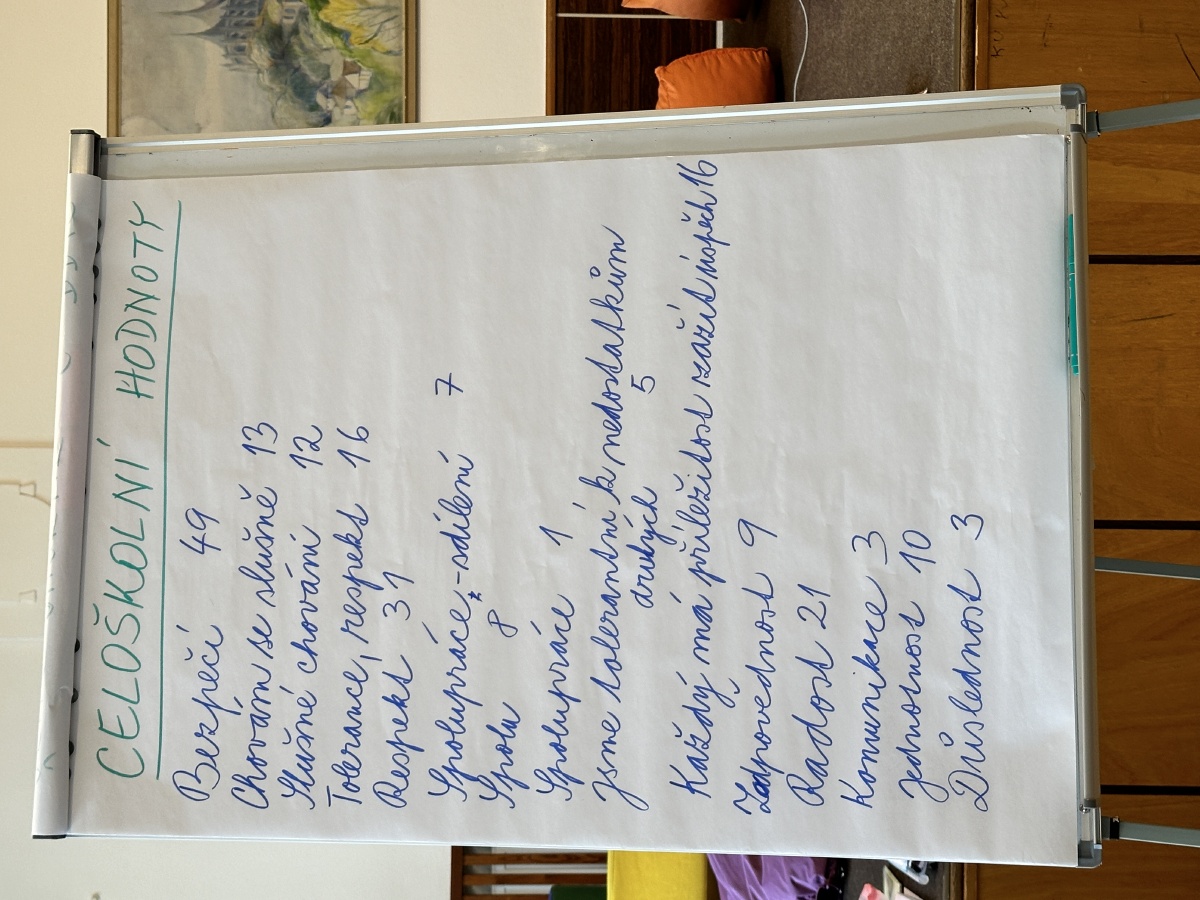 CELOŠKOLNÍ HODNOTY
Bezpečí 49
Chovám se slušně 13
Slušné chování 12
Tolerance, respekt 16
Respekt 31
Spolupráce - sdílení 7
Spolu 8
Spolupráce 1
Jsme tolerantní k nedostatkům
druhých 5
Každý má příležitost zažít úspěch 16
Zodpovědnost 9
Radost 21
Komunikace 3
Jednotnost 10
Důslednost 3